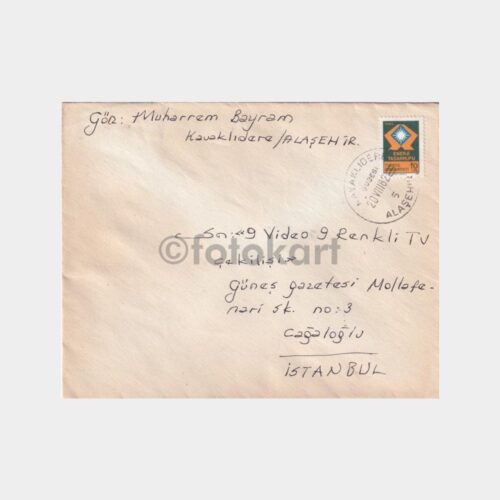 Gön: Muharrem Bayram
Kavaklıdere/ALAŞEHİR.
ENERJİ
TASARRUFU
10
KAVAKLIDERE
ALAŞEHİR
9 Video 9 Renkli TV
çekilişi
©fotokart
güneş gazetesi Mollafe-
nari sk. no:3
Cağaloğlu
İSTANBUL